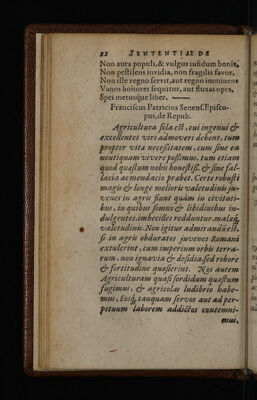 22 SENTENTIAE DE
Non aura populi, & vulgus infidum bonis,
Non pestilens invidia, non fragilis favor,
Non ille regno servit, aut regno imminens
Vanos honores sequitur, aut fluxas opes,
Spei metusque liber.
Franciscus Patricius Senens. Episco-
pus, de Repub.
Agricultura sola est, cui ingenui &
excellentes viri admoveri debent, tum
propter vitæ necessitatem, cum sine ea
neutiquam vivere possimus, tum etiam
quod quæstum nobis honestiss. & sine fal-
lacia ac mendacio præbet. Certe robusti
magis & longe melioris valetudinis ju-
venes in agris fiunt quàm in civitati-
bus, in quibus somno & libidinibus in-
dulgentes imbecilles redduntur, malæq́
valetudinis. Non igitur admirandũ est,
si in agris obdurato juvenes Romani
extulerint, cum imperium orbis terra-
rum, non ignavia & desidia, sed robore
& fortitudine quæsierint. Nos autem
Agriculturam quasi sordidum quæstum
fugimus, & agricolas ludibrio habe-
mus, Eosq́, tanquam servos aut ad per-
petuum laborem addictos contemni-
mus.